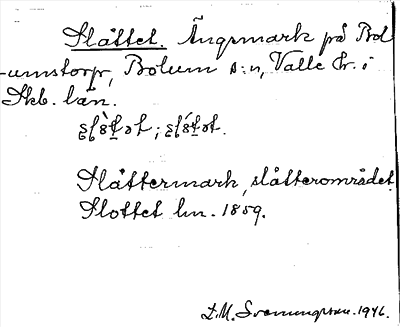 Slåttet. Ängsmark på Bol
-umstorp, Bolum s:n, Valle hr. i
Skb. län.
Slåttermark, slåtterområdet.
Slottet lm. 1859.
L.M. Svenungsson. 1946.